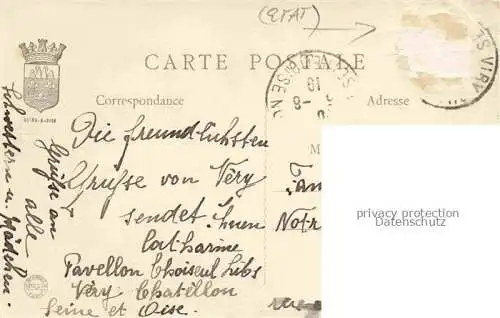 (ETAT)
CARTE POSTALE
Correspondance
Adresse
Die freundlichsten
Grüsse von Véry
sendet Ihnen
Catharine
Pavellon Choiseul
Véry Chatillon
Seine et Oise.
Grüsse an alle
Schwestern u. Mädchen.
Notr
privacy protection
Datenschutz